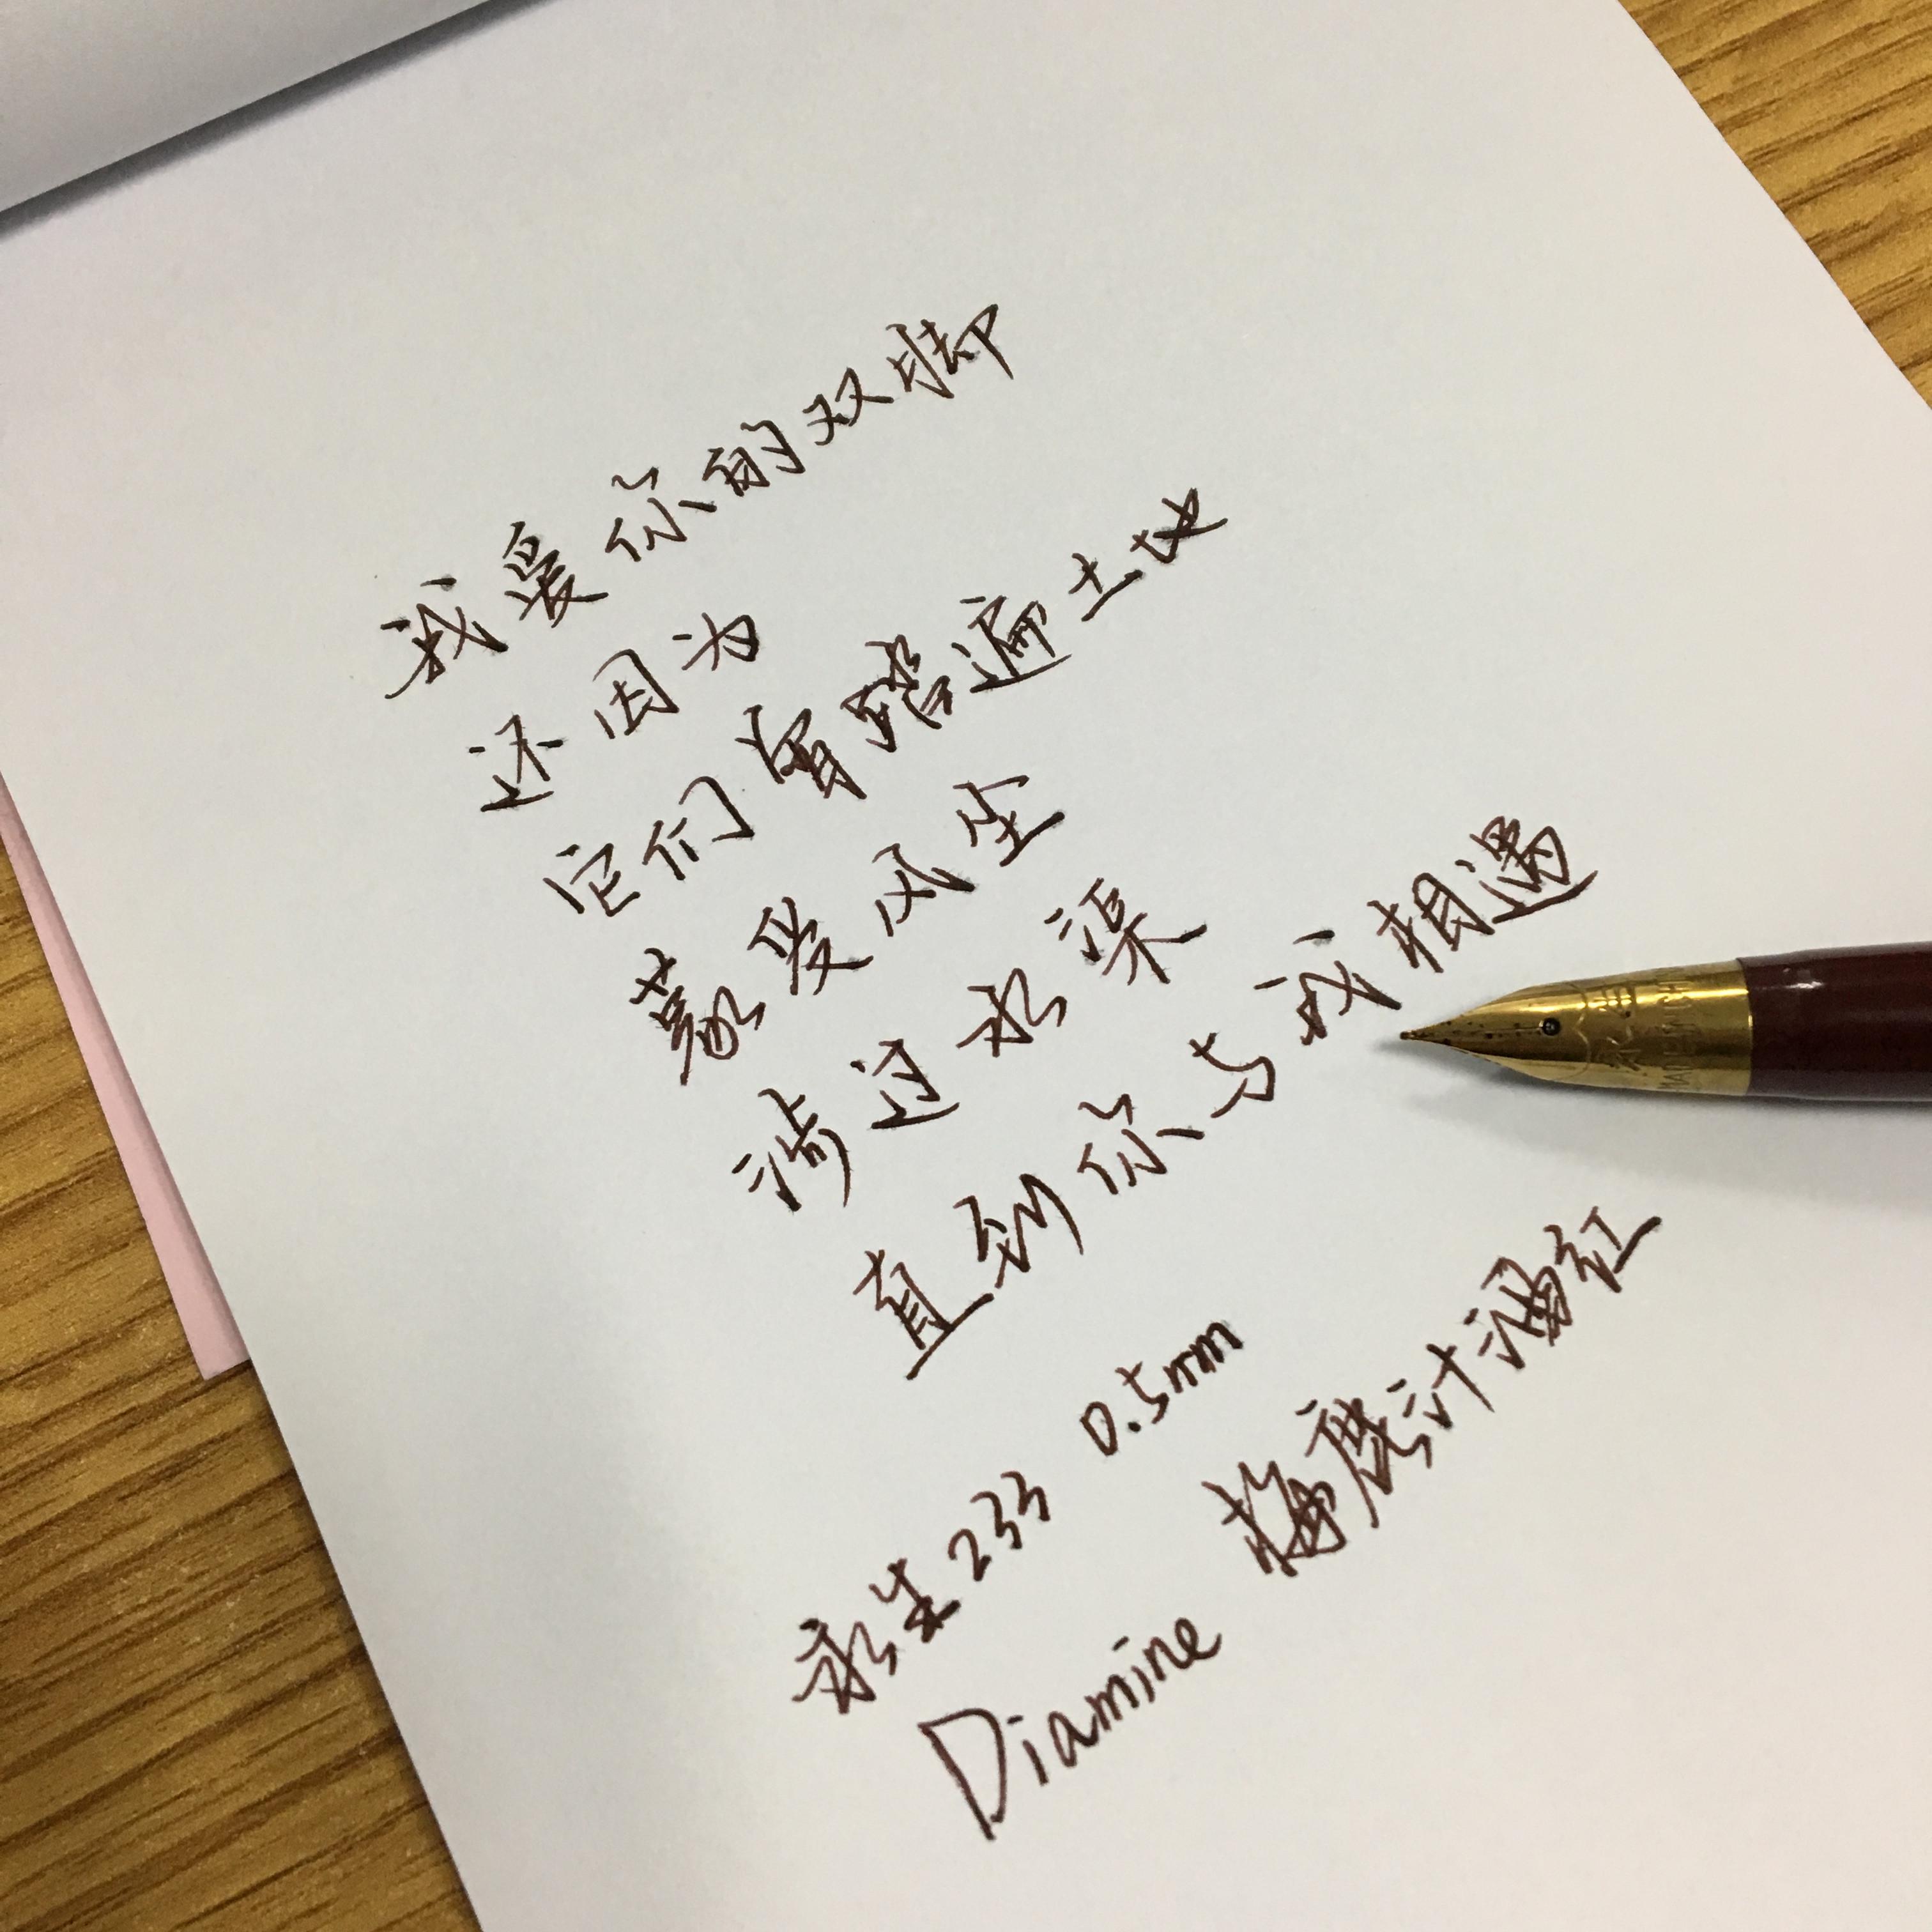 我爱你的双脚
还因为
它们曾踏遍土地
蒙受风尘
涉过水渠
直到你与我相遇
永生233 0.5mm
Diamine 梅鹿汁酒红